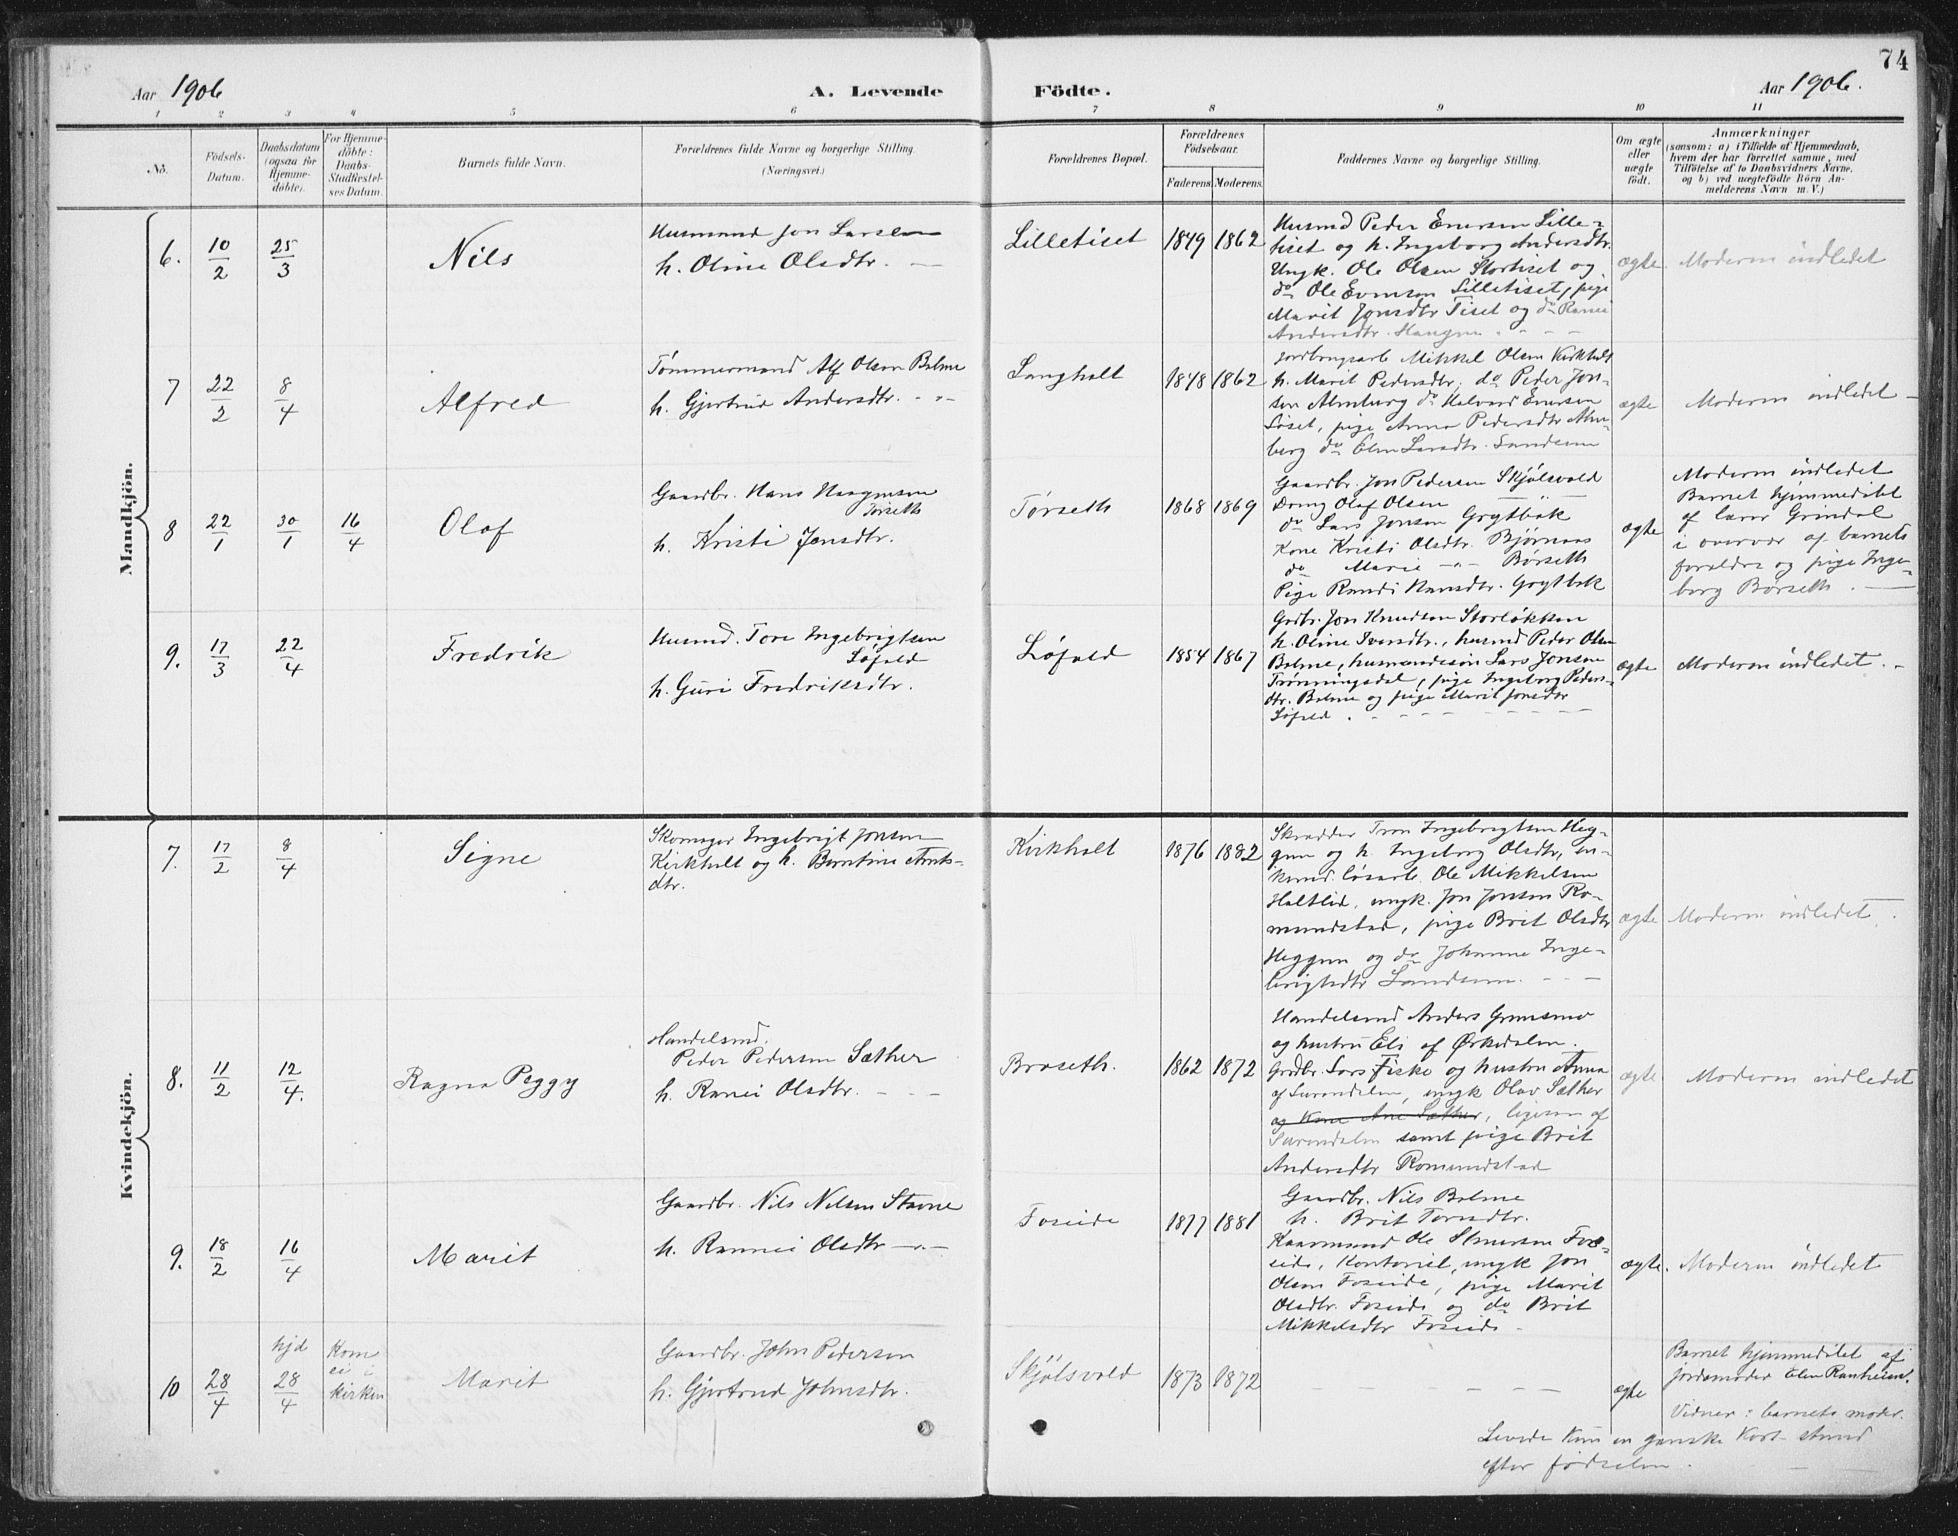 74
Aar 1906
A. Levende
Födte.
Aar 1906.
1 2 3 4 5 6 7 8 9 10 11
No.
Födsels-
Datum.
Daabsdatum
(ogsaa for
Hjemme-
döbte).
For Hjemme-
döbte:
Daabs-
Stadfæstel-
ses Datum.
Barnets fulde Navn.
Forældrenes fulde Navne og borgerlige Stilling.
(Næringsvei.)
Forældrenes Bopæl.
Forældrenes
Födselsaar.
Faderens. Moderens.
Faddernes Navne og borgerlige Stilling.
Om ægte
eller
uægte
födt.
Anmærkninger
(saasom: a) i Tilfælde af Hjemmedaab,
hvem der har forrettet samme, med
Tilföielse af to Daabsvidners Navne,
og b) ved uægtefödte Börn An-
melderens Navn m. V.)
Mandkjön.
6.
10/2
25/3
Nils
Husmand Jon Larsen
h. Oline Olsdtr. —
Lilletiset
1849 1862
Husmd Peder Evensen Lille-
tiset og h. Ingeborg Andersdtr.
Ungk. Ole Olsen Stortiset og
do Ole Evensen Lilletiset, pige
Marit Jonsdtr Tiset og do Ranei
Andersdtr. Haugen
ægte.
Moderen indledet
7
22/2
8/4
Alfred
Tømmermand Alf Olsen Bolme
h. Gjertrud Andersdtr.
Langholt
1848 1862
Jordbrugsarb Mikkel Olsen Kirkholt
h. Marit Pedersdtr; do Peder Jon-
sen Almberg do Halvard Evensen
Løset, pige Anna Pedersdtr Alm-
berg do Elen Larsdtr. Landsem
ægte
Moderen indledet
8
22/1
30/1
16/4
Olaf
Gaardbr. Hans Haagensen
Tørseth
h. Kristi Jonsdtr.
Tørseth
1868 1869
Gaardbr. Jon Pedersen Skjølsvold
Dreng Olaf Olsen
do Lars Jonsen Grytbak
Kone Kristi Olsdtr. Bjørnaas
do Marie Børseth
Pige Randi Hansdtr. Grytbak
ægte
Moderen indledet
Barnet hjemmedøbt
af lærer Grindal
i overvær af barnets
forældre og pige Inge-
borg Børseth.
9.
17/3
22/4
Fredrik
Husmd. Tore Ingebrigtsen
Løfald
h. Guri Fredriksdtr.
Løfald
1854 1867
Grdbr. Jon Knudsen Storløkken
h. Oline Iversdtr., husmd Peder Olsen
Bolme, husmandssøn Lars Jonsen
Trønningsdal, pige Ingeborg Peders-
dtr. Bolme og pige Marit Jonsdtr
Løfald.
ægte
Moderen indledet.
Kvindekjön.
7.
17/2
8/4
Signe
Skomager Ingebrigt Jonsen
Kirkholt og h. Berntine Arnts-
dtr.
Kirkholt
1876 1882
Skrædder Tron Ingebrigtsen Heg-
gem og h. Ingeborg Olsdtr, en-
kemd. løsarb. Ole Mikkelsen
Holtlid, ungk. Jon Jonsen Ro-
mundstad, pige Brit Olsdtr
Heggem og do Johanne Inge-
brigtsdtr Landsem.
ægte
Moderen indledet.
8.
11/2
12/4.
Ragna Peggy
Handelsmd.
Peder Pedersen Sæther
h. Ranei Olsdtr.
Braseth.
1862 1872
Handelsmd Anders Grimsmo
og hustru Eli af Ørkedalen.
Grdbr. Lars Fiske og hustru Anna
af Surendalen, ungk Olav Sæther
og Kone Ane Sæther, ligesom af
Surendalen samt pige Brit
Andersdtr Romundstad
ægte.
Moderen indledet
9.
18/2
16/4
Marit
Gaardbr. Nils Nilsen Stavne
h. Rannei Olsdtr
Foseide
1877 1881
Gaardbr. Nils Bolme
h. Brit Toresdtr.
Kaarmand Ole Foss-
eide, Kontorist, ungk Jon
Olsen Foseide, pige Marit
Olsdtr. Foseide og do Brit
Mikkelsdtr Foseide
ægte.
Moderen indledet
10
28/4
hjd
28/4
Kom
ei i
kirken
Marit
Gaardbr. John Pedersen
h. Gjertrud Johnsdtr.
Skjølsvold
1873 1872
ægte
Barnet hjemmedøbt af
jordemoder Elen Ranheim.
Vidner: barnets moder.
Levede kun en ganske kort stund
efter fødselen.